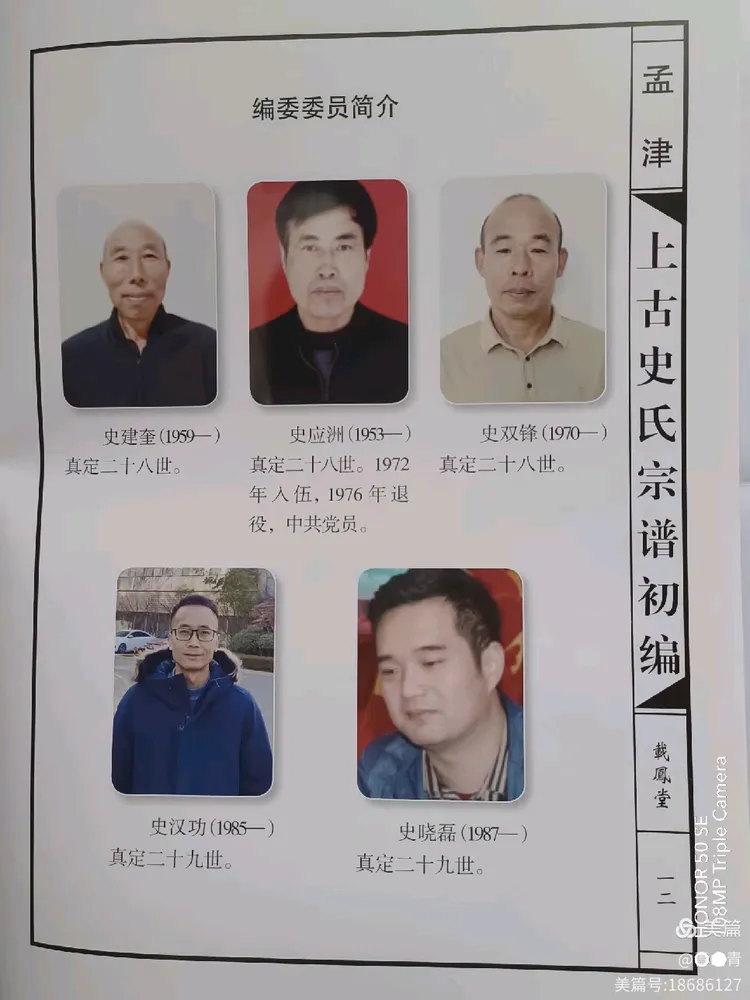 编委委员简介
史建奎(1959—)
真定二十八世。
史应洲(1953—)
真定二十八世。1972
年入伍,1976年退
役,中共党员。
史双锋(1970—)
真定二十八世。
史汉功(1985—)
真定二十九世。
史晓磊(1987—)
真定二十九世。
孟津
上古史氏宗谱初编
載鳳堂
一二
HONOR 50 SE
108MP Triple Camera
美篇
青
美篇号:18686127